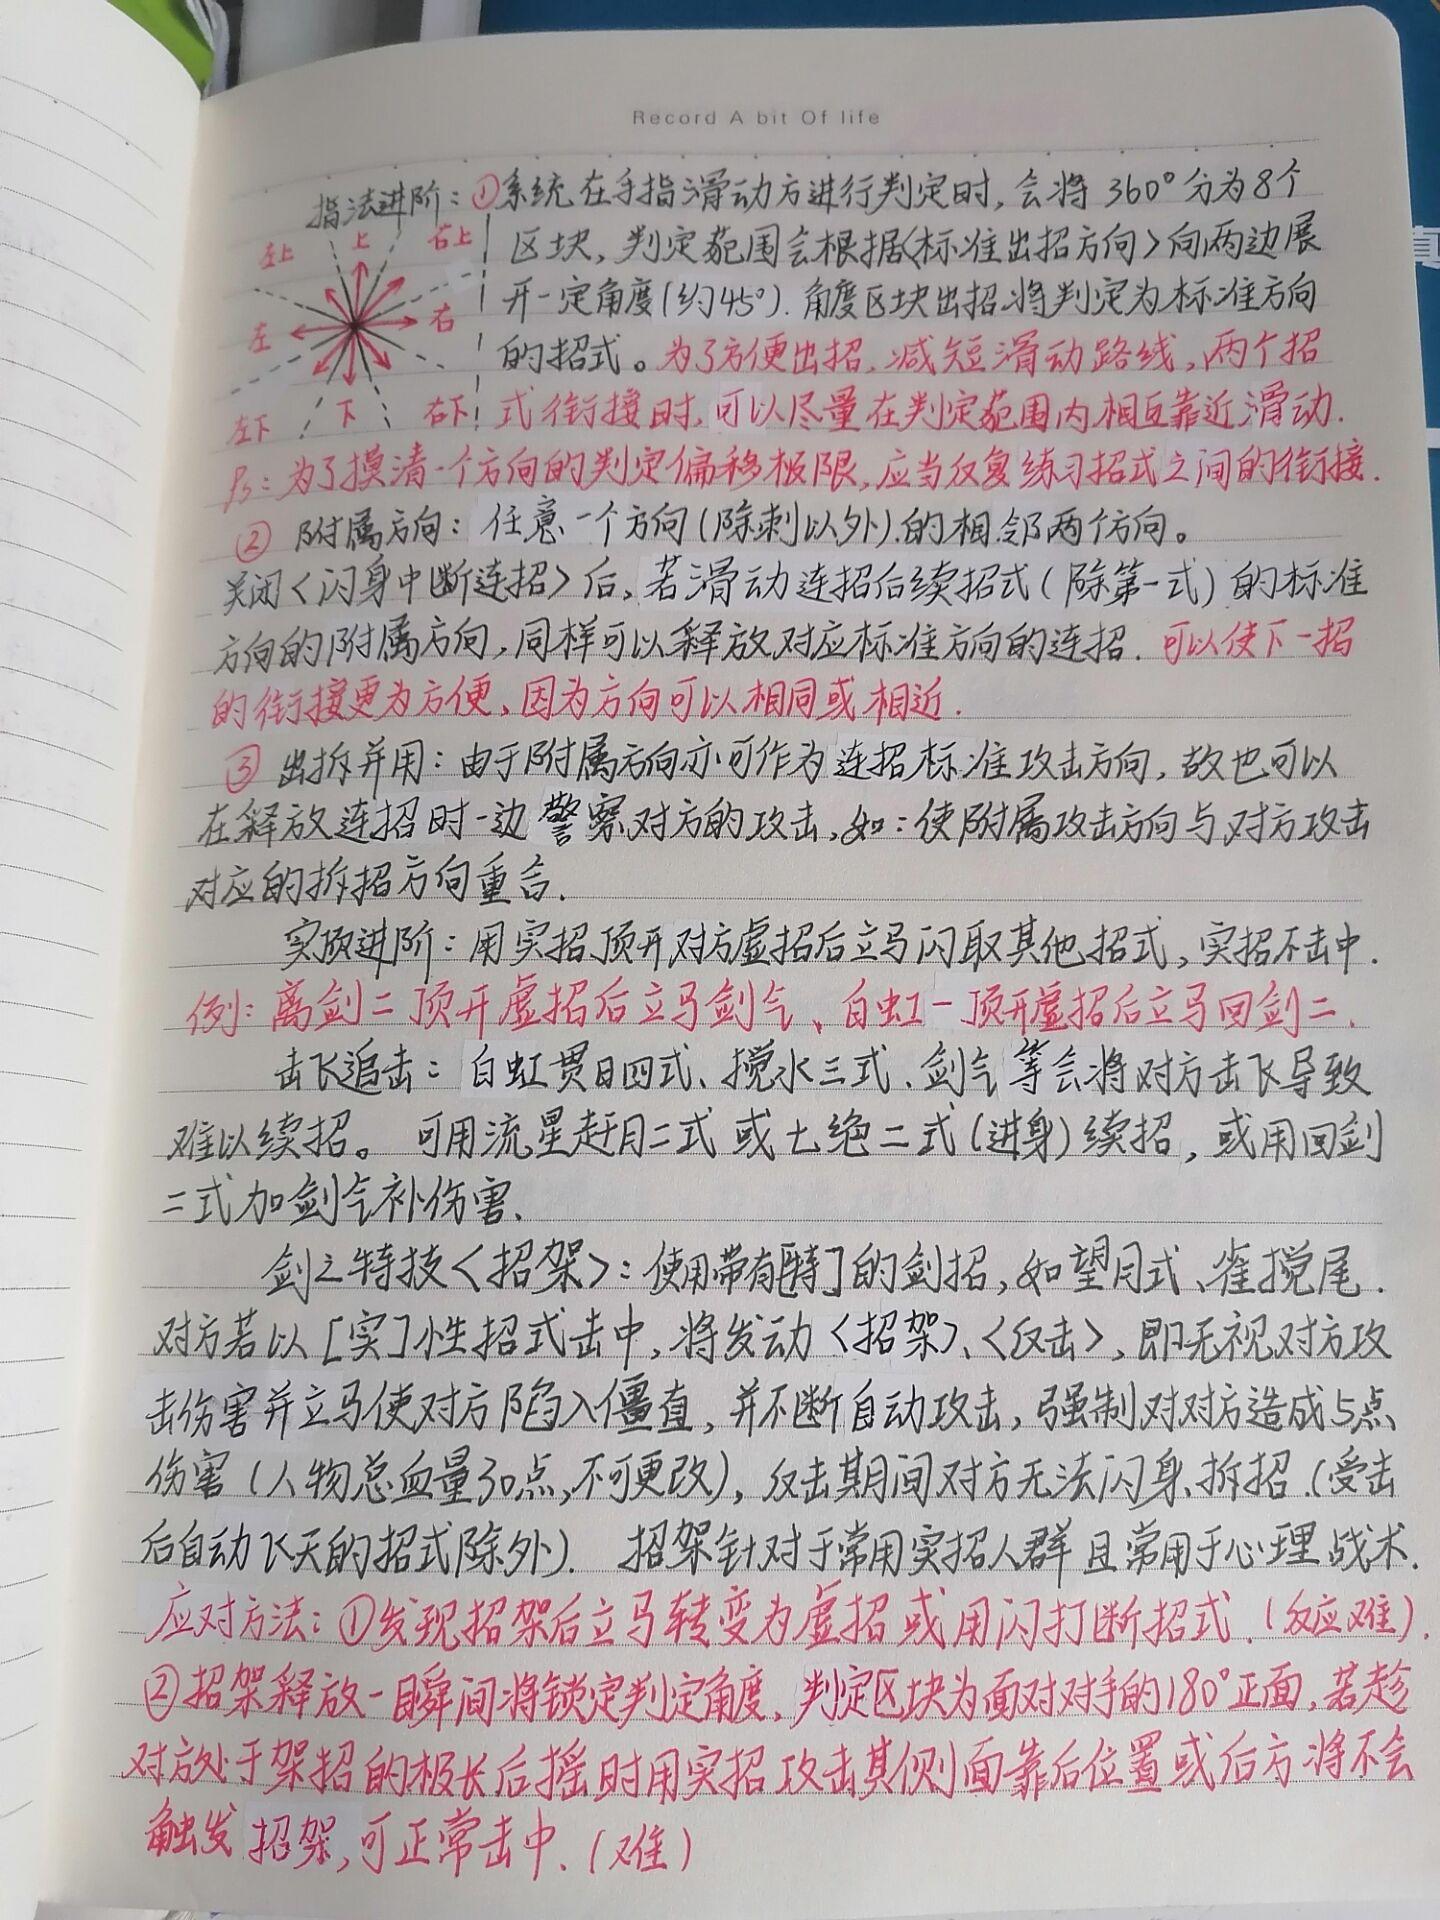 Record A bit Of life
指法进阶：①系统在手指滑动方进行判定时，会将360°分为8个
左上 上 右上
区块，判定范围会根据<标准出招方向>向两边展
左 右
开一定角度(约45°).角度区块出招将判定为标准方向
的招式。为了方便出招,减短滑动路线,两个招
左下 下 右下
式衔接时,可以尽量在判定范围内相互靠近滑动.
Ps:为了摸清一个方向的判定偏移极限,应当反复练习招式之间的衔接.
② 附属方向：任意一个方向(除刺以外).的相邻两个方向。
关闭<闪身中断连招>后,若滑动连招后续招式(除第一式)的标准
方向的附属方向,同样可以释放对应标准方向的连招.可以使下一招
的衔接更为方便,因为方向可以相同或相近.
③ 出拆并用：由于附属方向亦可作为连招标准攻击方向,故也可以
在释放连招时一边警察对方的攻击,如:使附属攻击方向与对方攻击
对应的拆招方向重合.
实取进阶：用实招顶开对方虚招后立马闪取其他招式,实招不击中.
例:离剑二顶开虚招后立马剑气、白虹一顶开虚招后立马回剑二.
击飞追击：白虹贯日四式、搅水三式、剑气等会将对方击飞导致
难以续招。可用流星赶月二式或七绝二式(进身)续招,或用回剑
二式加剑气补伤害.
剑之特技<招架>:使用带有[特]的剑招,如望月式、雀搅尾.
对方若以[实]性招式击中,将发动<招架>、<反击>,即无视对方攻
击伤害并立马使对方陷入僵直,并不断自动攻击,强制对对方造成5点
伤害(人物总血量30点,不可更改),反击期间对方无法闪身、拆招.(受击
后自动飞天的招式除外).招架针对于常用实招人群且常用于心理战术.
应对方法:①发现招架后立马转变为虚招或用闪打断招式.(反应难).
②招架释放一瞬间将锁定判定角度,判定区块为面对对手的180°正面,若趁
对方处于架招的极长后摇时用实招攻击其侧面靠后位置或后方将不会
触发招架,可正常击中.(难)